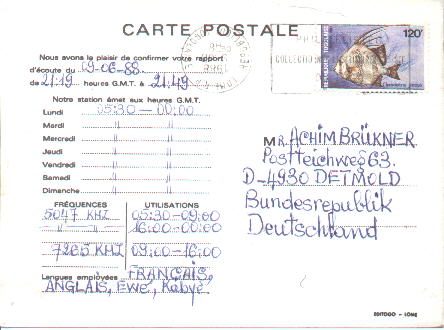 CARTE POSTALE
Nous avons le plaisir de confirmer votre rapport
d'écoute du 09-06-88.
de 21:19 heures G.M.T. à 21:49
Notre station émet aux heures G.M.T.
Lundi 05:30-00:00
Mardi "
Mercredi "
Jeudi "
Vendredi "
Samedi "
Dimanche "
FRÉQUENCES UTILISATIONS
5047 KHZ 05:30-09:00
" " 16:00-00:00
7265 KHZ 09:00-16:00
Langues employées FRANÇAIS,
ANGLAIS, Ewe, Kabyè
120F
REPUBLIQUE TOGOLAISE
MR. ACHIM BRÜKNER
Postteichweg 63.
D-4930 DETMOLD
Bundesrepublik
Deutschland
EDITOGO - LOMÉ